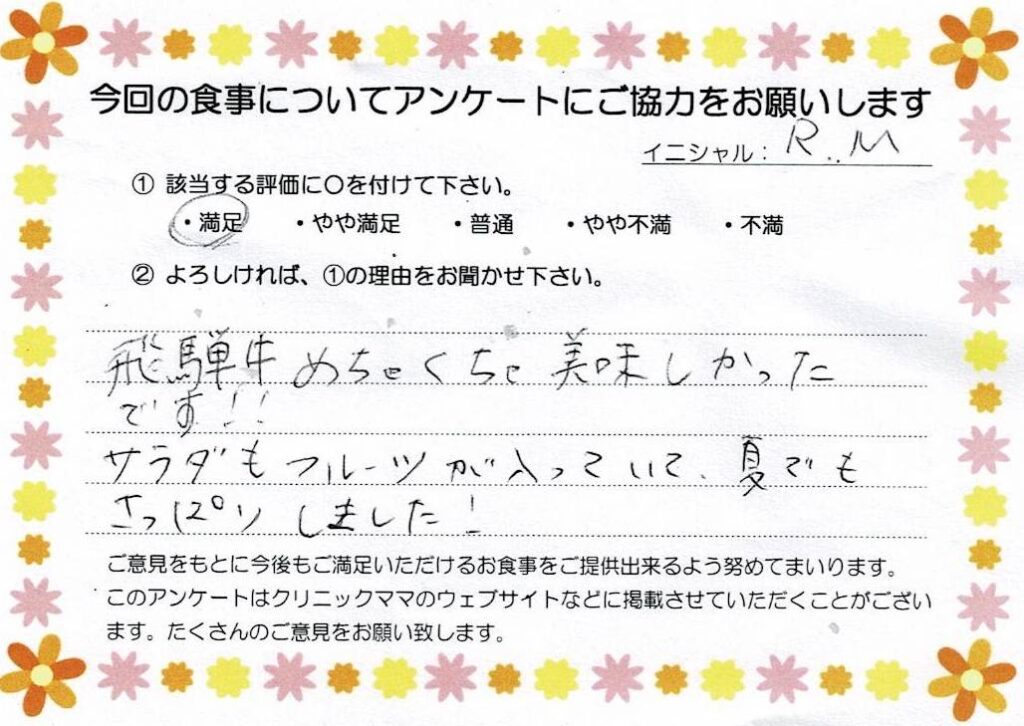 今回の食事についてアンケートにご協力をお願いします
イニシャル： R..M
① 該当する評価に〇を付けて下さい。
・満足 ・やや満足 ・普通 ・やや不満 ・不満
② よろしければ、①の理由をお聞かせ下さい。
飛騨牛めちゃくちゃ美味しかった
です!!
サラダもフルーツが入っていて、夏でも
さっぱりしました!
ご意見をもとに今後もご満足いただけるお食事をご提供出来るよう努めてまいります。
このアンケートはクリニックママのウェブサイトなどに掲載させていただくことがござい
ます。たくさんのご意見をお願い致します。